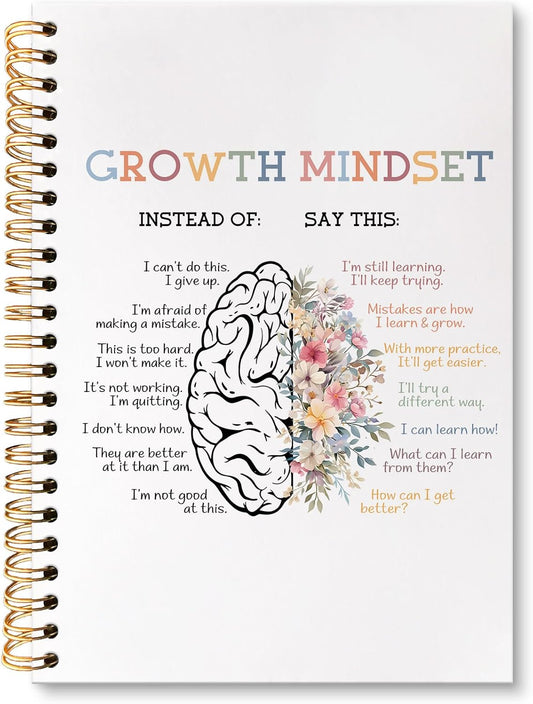 GROWTH MINDSET
INSTEAD OF:
I can't do this.
I give up.
I'm afraid of
making a mistake.
This is too hard.
I won't make it.
It's not working.
I'm quitting.
I don't know how.
They are better
at it than I am.
I'm not good
at this.
SAY THIS:
I'm still learning.
I'll keep trying.
Mistakes are how
I learn & grow.
With more practice,
It'll get easier.
I'll try a
different way.
I can learn how!
What can I learn
from them?
How can I get
better?